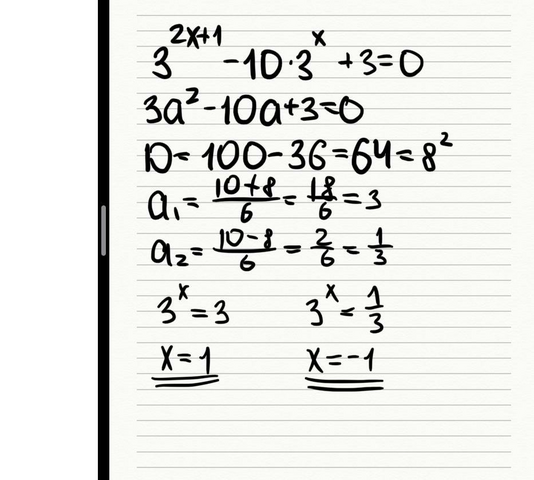 3^(2x+1) - 10·3^x + 3 = 0
3a² - 10a + 3 = 0
D = 100 - 36 = 64 = 8²
a₁ = (10+8)/6 = 18/6 = 3
a₂ = (10-8)/6 = 2/6 = 1/3
3^x = 3 3^x = 1/3
x = 1 x = -1